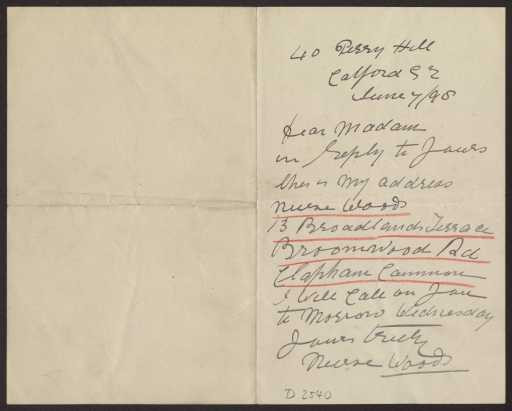 40 Perry Hill
Catford S E
June 7/98
Dear Madam
in Reply to Yours
this is My address
Nurse Woods
13 Broadlands Terrace
Broomwood Rd
Clapham Common
I Will Call on You
to Morrow Wednesday
Yours truly
Nurse Woods
D 2540